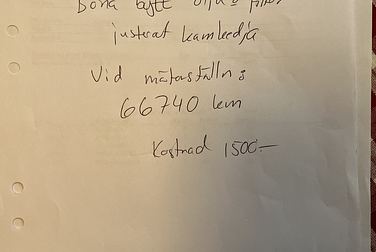 Börja bytt olja & filter
justerat kamkedja
Vid mätarställn:
66740 km
Kostnad 1500:-